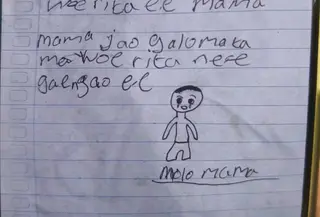 woe rita ee mama
mama jao galomaka
mawoe rita nere
gaengao ee
molo mama